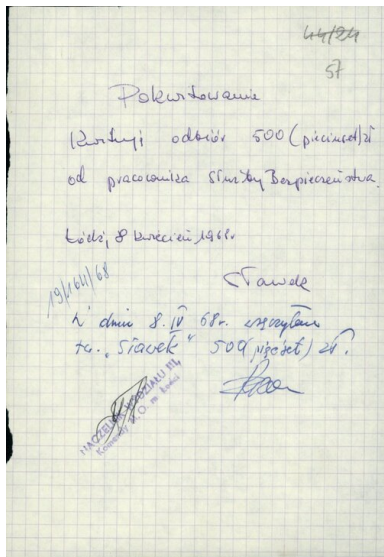 44/24
57
Pokwitowanie
Kwituję odbiór 500 (pięciuset) zł
od pracownika Służby Bezpieczeństwa.
Łódź, 8 kwiecień 1968r
Sławek
19/164/68
W dniu 8.IV 68r. wręczyłem
tw. „Sławek" 500 (pięćset) zł.
NACZELNIK WYDZIAŁU III
Komendy M.O. m. Łodzi